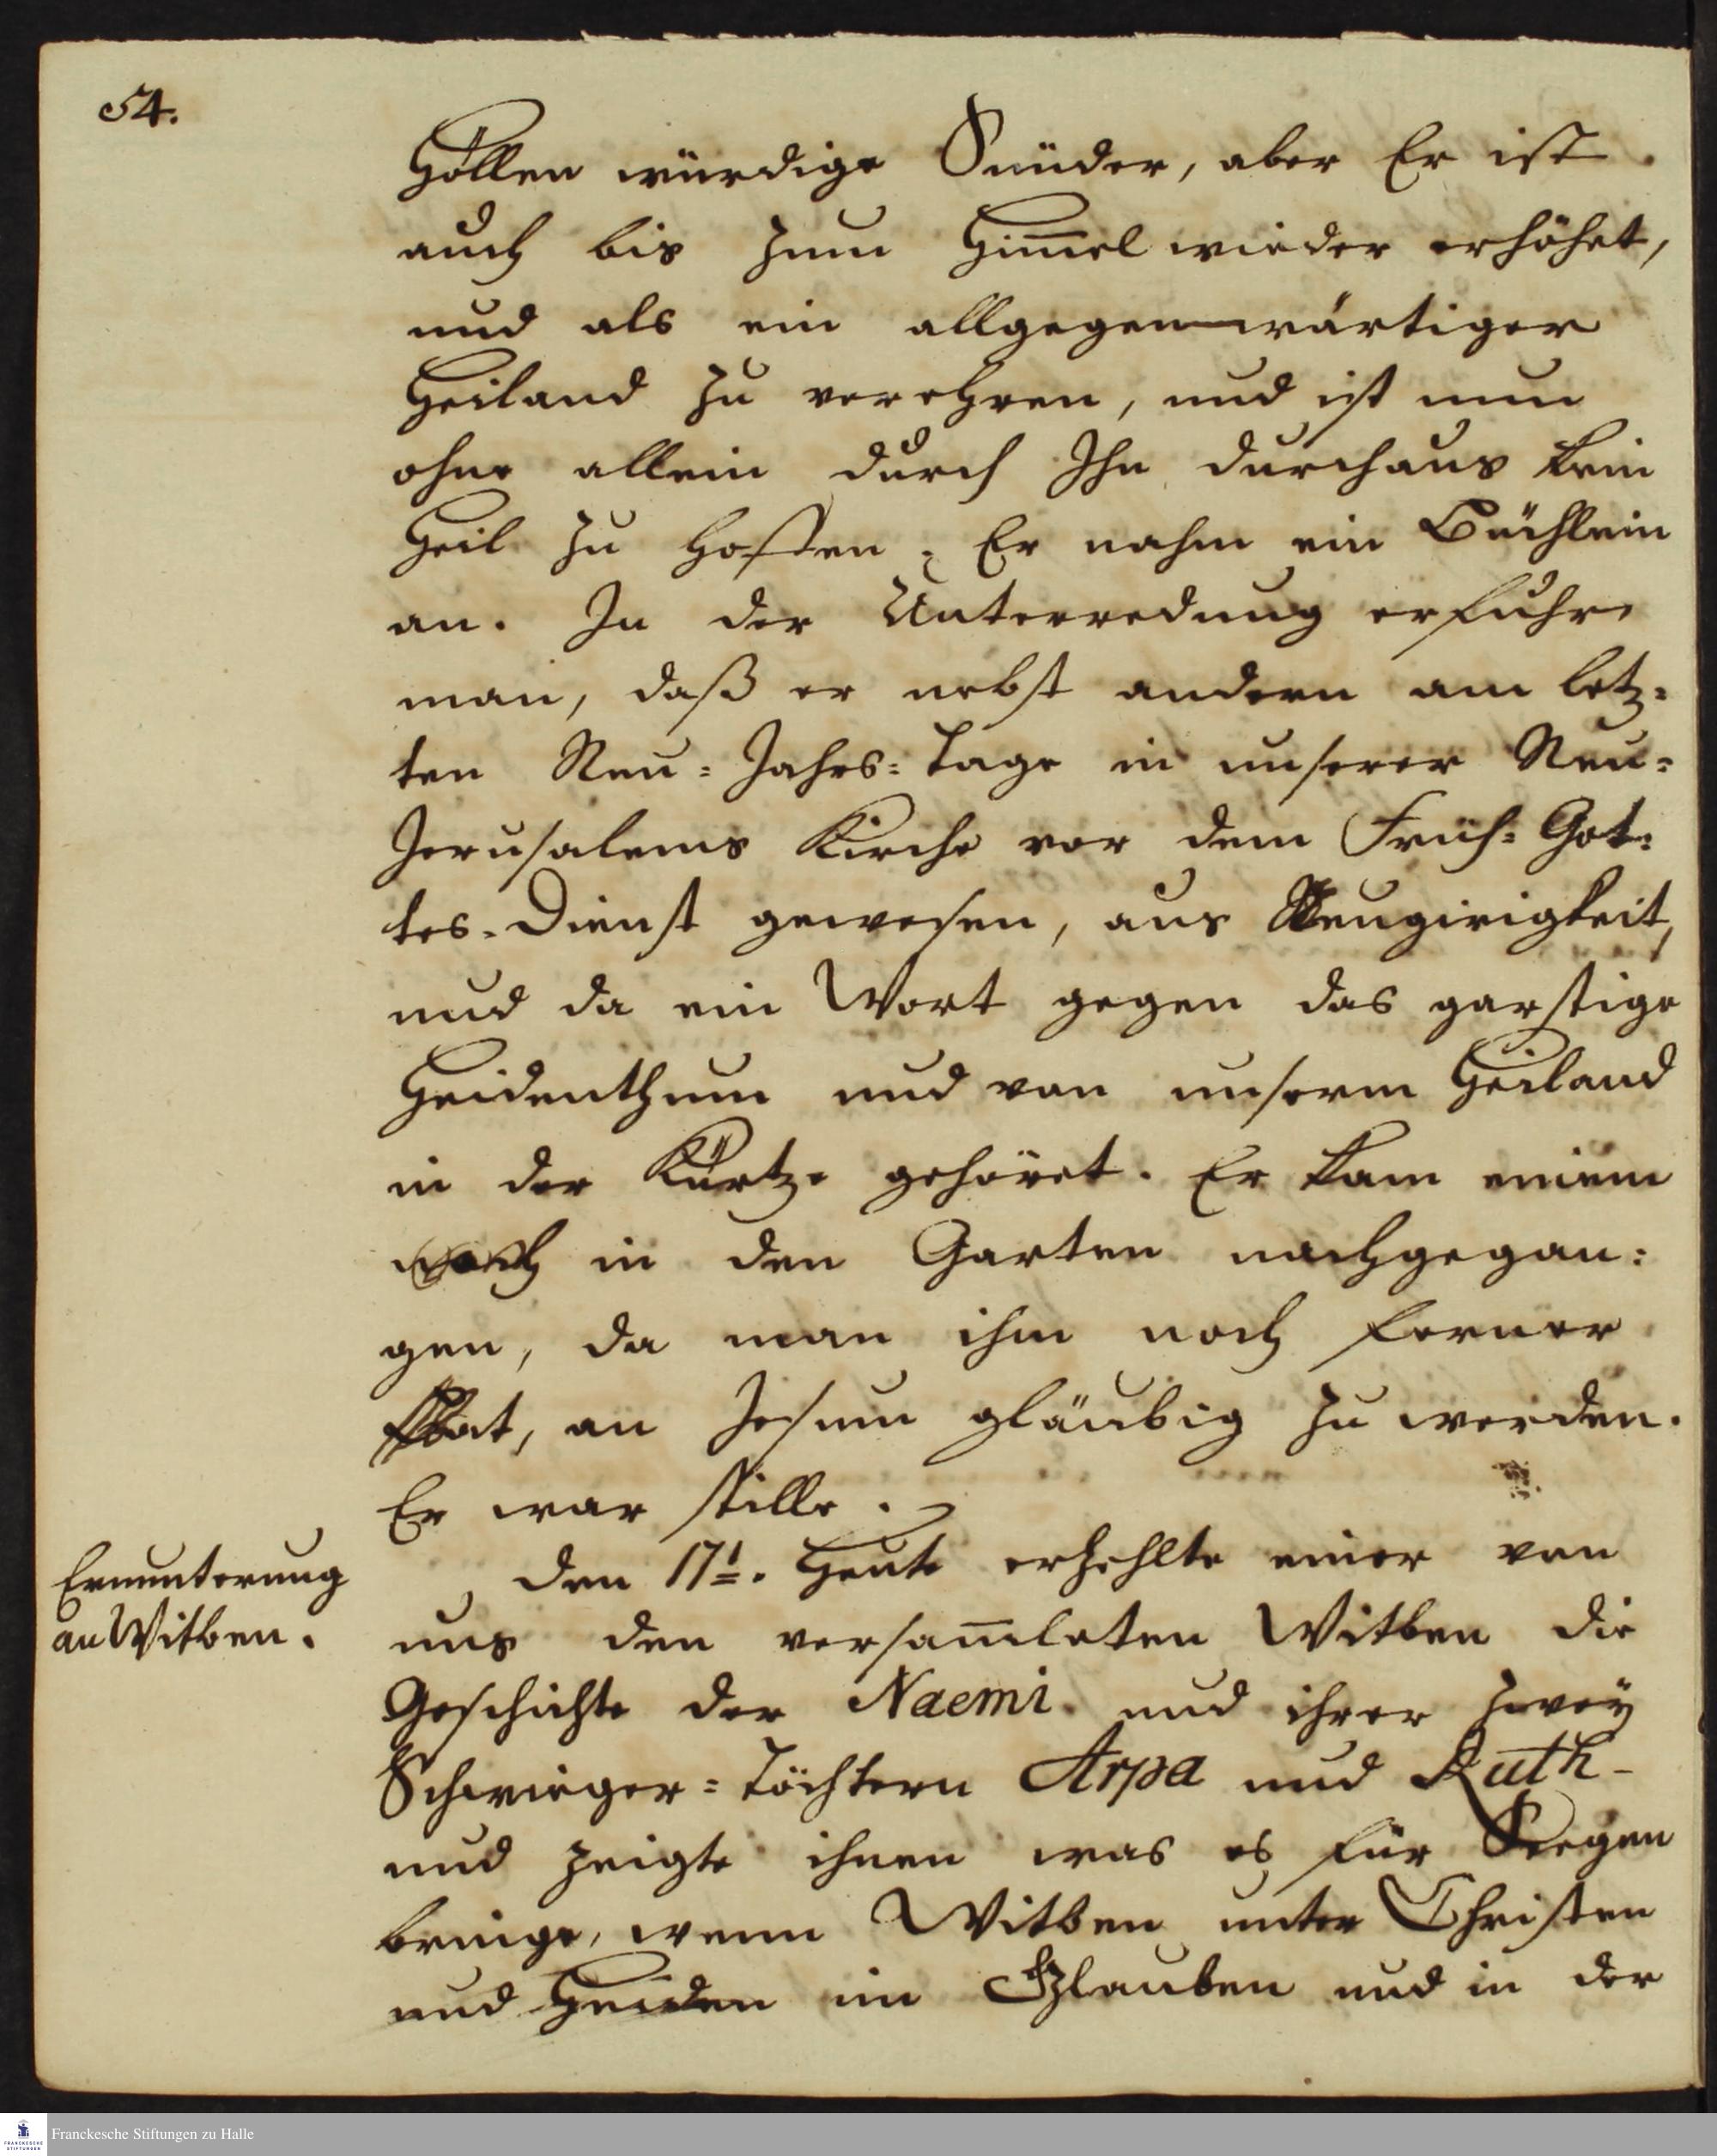 54.
Höllen würdige Sünder, aber Er ist
auch bis zum Him̅el wieder erhöhet,
und als ein allgegenwärtiger
Heiland zu verehren, und ist nun
ohne allein durch Ihn durchaus kein
Heil zu hoffen. Er nahm ein Büchlein
an. In der Unterredung erfuhr
man, daß er nebst andern am letz=
ten Neu=Jahrs=Tage in unserer Neu=
Jerusalems Kirche vor dem Früh=Got=
tes-Dienst gewesen, aus Neugirigkeit,
und da ein Wort gegen das garstige
Heidenthum und von unserm Heiland
in der Kürtze gehöret. Er kam einem
noch in den Garten nachgegan=
gen, da man ihm noch ferner
bat, an Jesum gläubig zu werden.
Er war stille.
Ermunterung
an Witben.
den 17t. Heute erzehlte einer von
uns den versam̅leten Witben die
Geschichte der Naemi und ihrer zwey
Schwieger=Töchtern Arpa und Ruth-
und zeigte ihnen was es für Seegen
bringe, wenn Witben unter Christen
und Heiden im Glauben und in der
Franckesche Stiftungen zu Halle
FRANCKESCHE
STIFTUNGEN